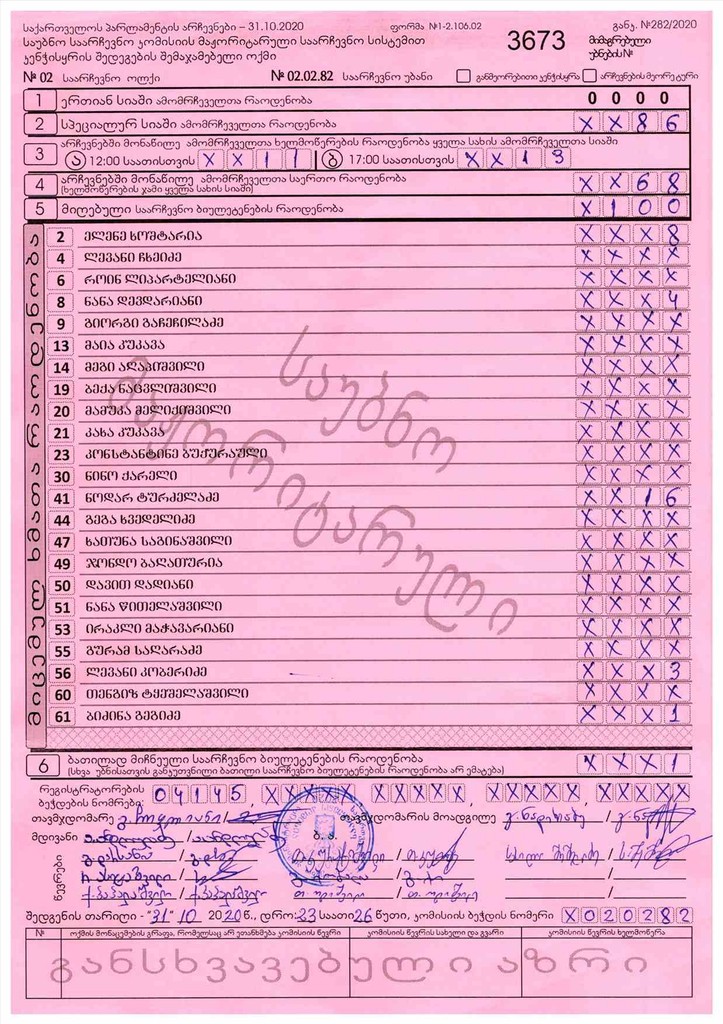 საქართველოს პარლამენტის არჩევნები – 31.10.2020
ფორმა №1-2.106.02
განკ. №282/2020
საუბნო საარჩევნო კომისიის მაჟორიტარული საარჩევნო სისტემით
კენჭისყრის შედეგების შემაჯამებელი ოქმი
3673
მიმაგრებული
უბნების№
№ 02 საარჩევნო ოლქი
№ 02.02.82 საარჩევნო უბანი
განმეორებითი კენჭისყრა
არჩევნების მეორე ტური
1 ერთიან სიაში ამომრჩეველთა რაოდენობა 0 0 0 0
2 სპეციალურ სიაში ამომრჩეველთა რაოდენობა X X 8 6
3 არჩევნებში მონაწილე ამომრჩეველთა ხელმოწერების რაოდენობა ყველა სახის ამომრჩეველთა სიაში
ა 12:00 საათისთვის X X 1 1 ბ 17:00 საათისთვის X X 1 3
4 არჩევნებში მონაწილე ამომრჩეველთა საერთო რაოდენობა X X 6 8
(ხელმოწერების ჯამი ყველა სახის სიაში)
5 მიღებული საარჩევნო ბიულეტენების რაოდენობა X 1 0 0
მიცემულ ხმათა რაოდენობა
2 ელენე ხოშტარია X X X 8
4 ლევანი ჩხეიძე X X X X
6 როინ ლიპარტელიანი X X X X
8 ნანა დევდარიანი X X X 4
9 გიორგი გაჩეჩილაძე X X X X
13 მაია კუკავა X X X X
14 მეგი აღაპიშვილი X X X X
19 ბექა ნაცვლიშვილი X X X X
20 მამუკა მელიქიშვილი X X X X
21 კახა კუკავა X X X X
23 კონსტანტინე გუჟურაული X X X X
30 ნინო ქარელი X X X X
41 ნოდარ ტურძელაძე X X 1 6
44 გეგა ხვედელიძე X X X X
47 ხათუნა საგინაშვილი X X X X
49 ჯონდო ბაღათურია X X X X
50 დავით დადიანი X X X X
51 ნანა წითელაშვილი X X X X
53 ირაკლი მაჭავარიანი X X X X
55 გურამ საღარაძე X X X X
56 ლევანი კობერიძე X X X 3
60 თენგიზ ტყეშელაშვილი X X X X
61 ბიძინა გეგიძე X X X 1
საუბნო
მაჟორიტარული
6 ბათილად მიჩნეული საარჩევნო ბიულეტენების რაოდენობა X X X 1
(სხვა უბნისათვის განკუთვნილი ბათილი საარჩევნო ბიულეტენების რაოდენობა არ ემატება)
რეგისტრატორების
ბეჭდების ნომრები: 0 4 1 4 5 , X X X X X , X X X X X , X X X X X , X X X X X
თავმჯდომარე
თავმჯდომარის მოადგილე
მდივანი
ბ.ა.
წევრები
შედგენის თარიღი - "31" 10 2020 წ., დრო: 23 საათი 26 წუთი, კომისიის ბეჭდის ნომერი X 0 2 0 2 8 2
№ ოქმის მონაცემების გრაფა, რომელსაც არ ეთანხმება კომისიის წევრი
კომისიის წევრის სახელი და გვარი
კომისიის წევრის ხელმოწერა
განსხვავებული აზრი